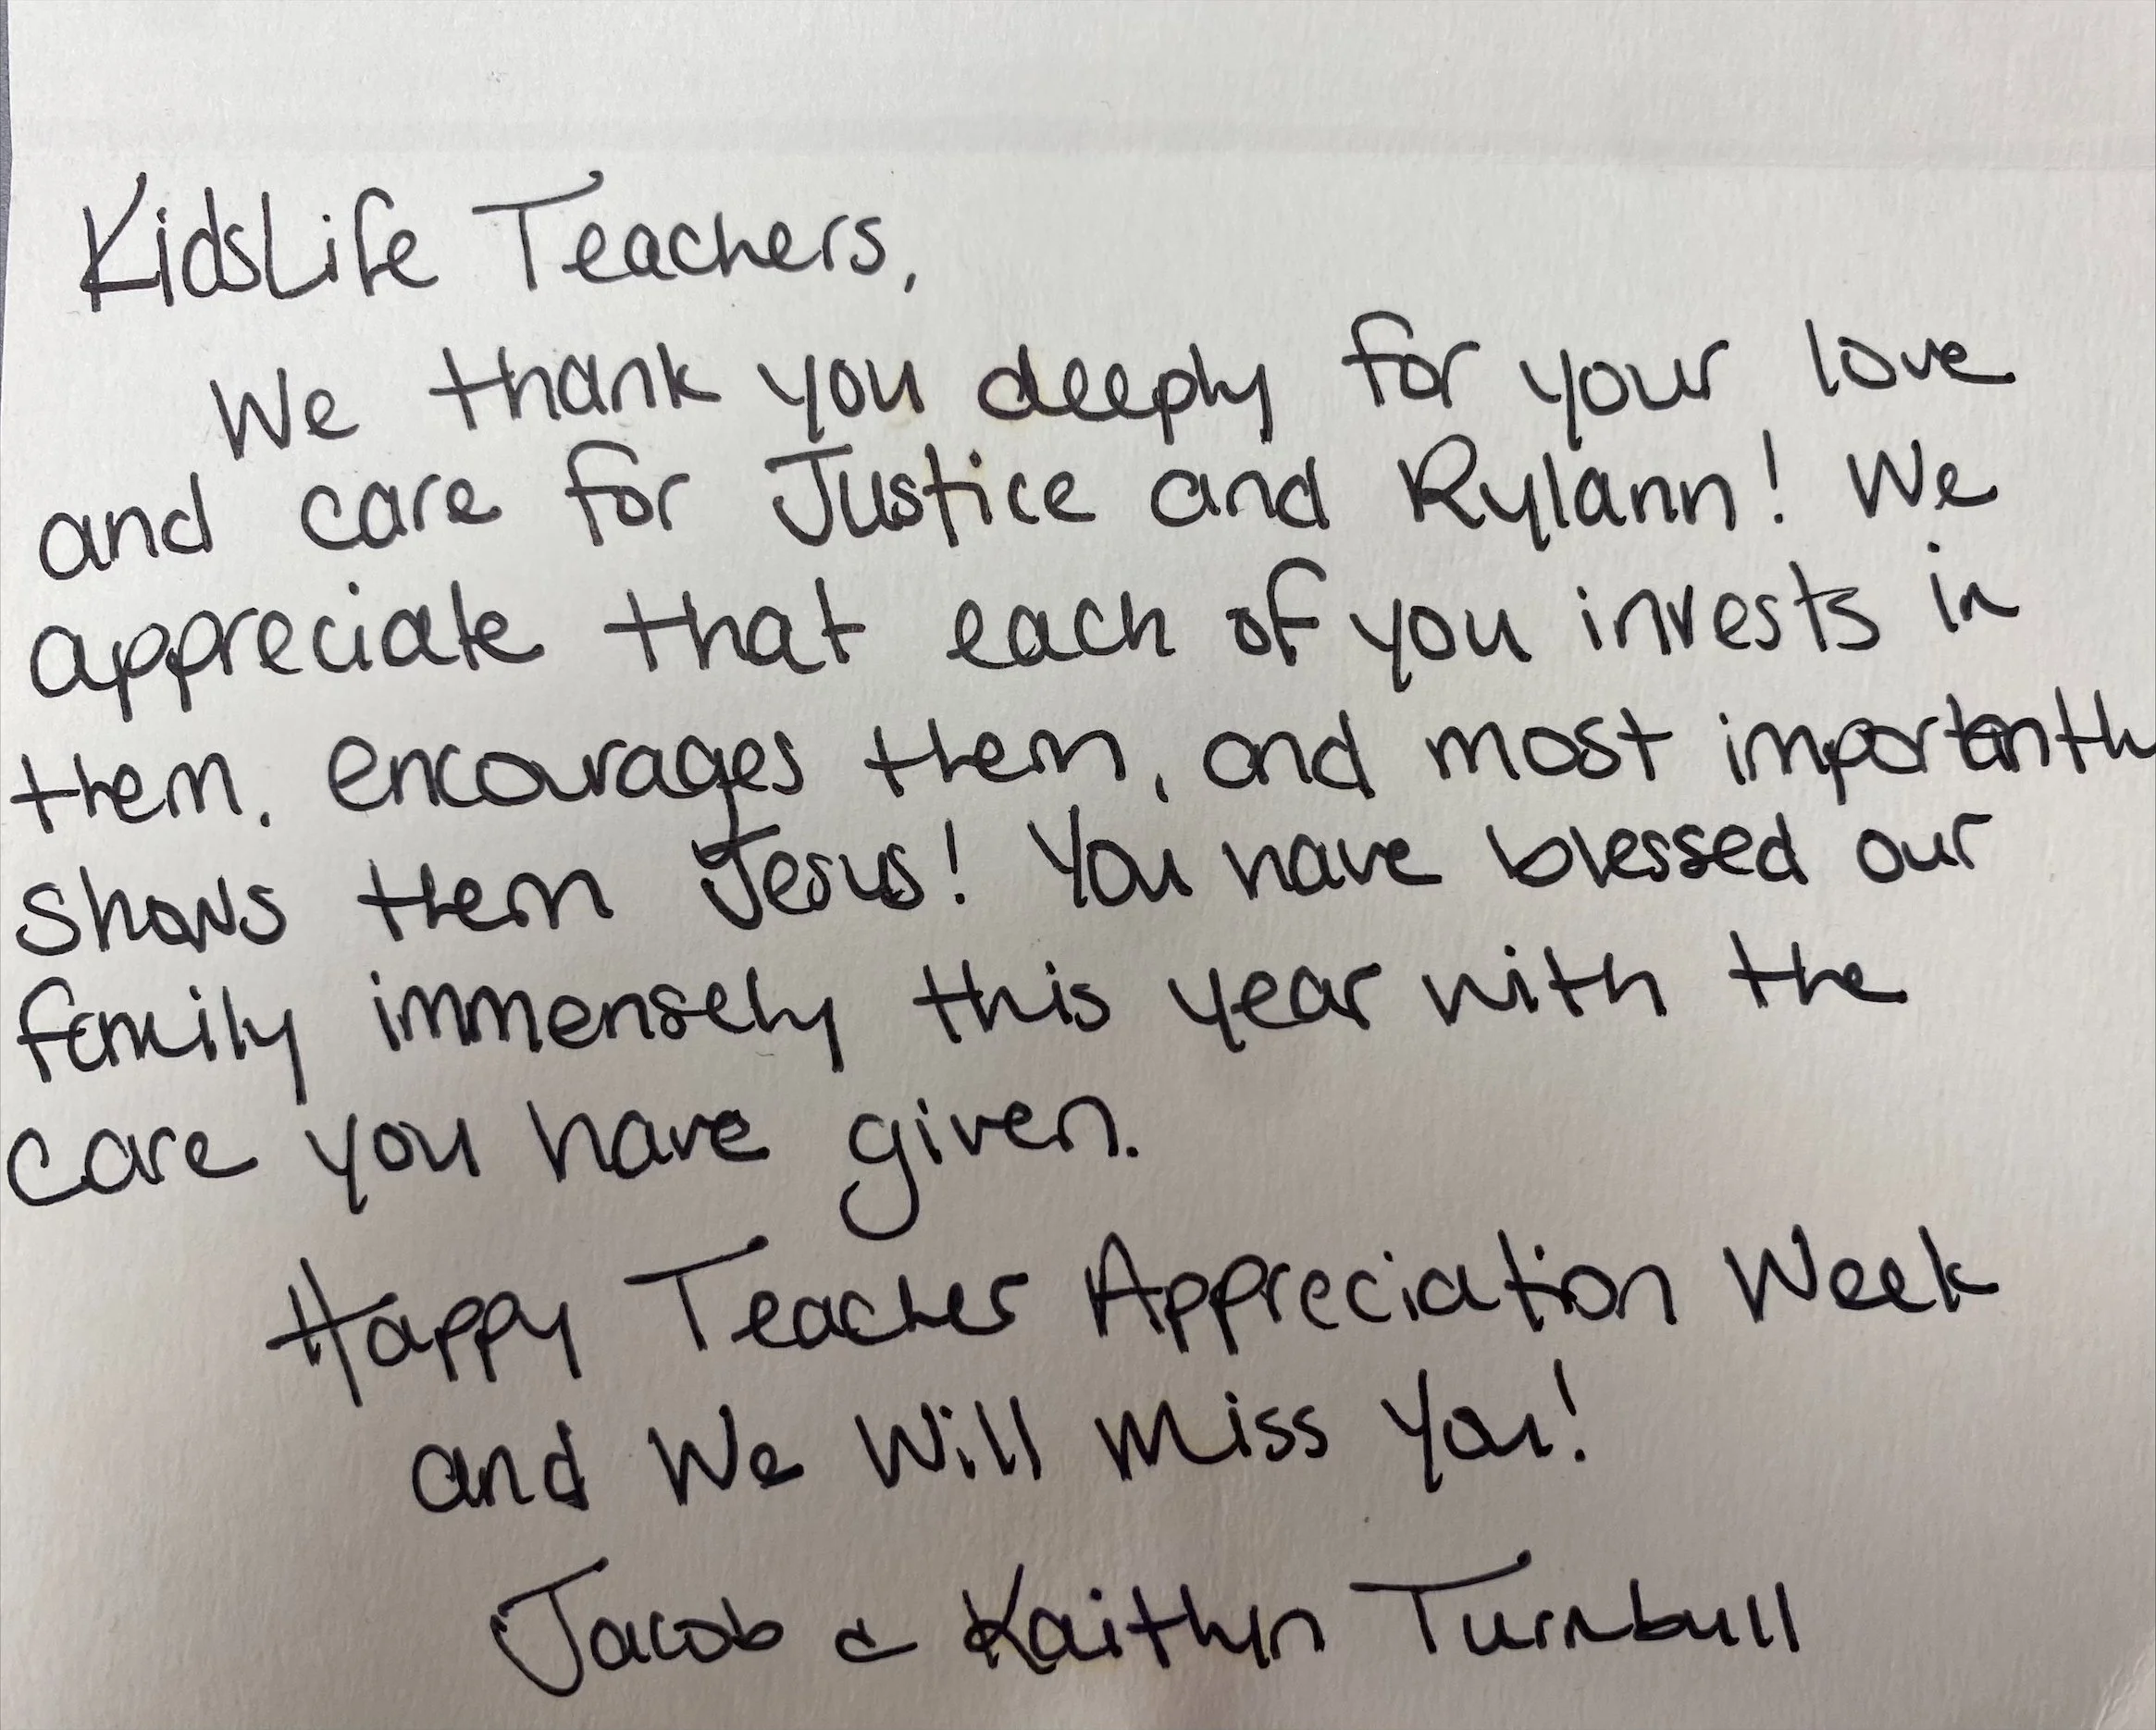 KidsLife Teachers,
We thank you deeply for your love
and care for Justice and Rylann! We
appreciate that each of you invests in
them, encourages them, and most importantly
shows them Jesus! You have blessed our
family immensely this year with the
care you have given.
Happy Teacher Appreciation Week
and We Will Miss You!
Jacob & Kaitlyn Turnbull